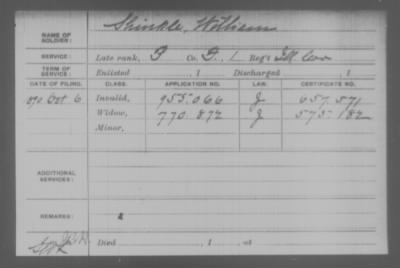 NAME OF SOLDIER: Shinkle, William
SERVICE: Late rank, P Co. D, 1 Reg't Ill Cav
TERM OF SERVICE: Enlisted , 1 Discharged , 1
DATE OF FILING. CLASS. APPLICATION NO. LAW. CERTIFICATE NO.
Oct 6 Invalid, 955.066 J 657.571
Widow, 770.872 J 575.182
Minor,
ADDITIONAL SERVICES:
REMARKS:
Died , 1 , at